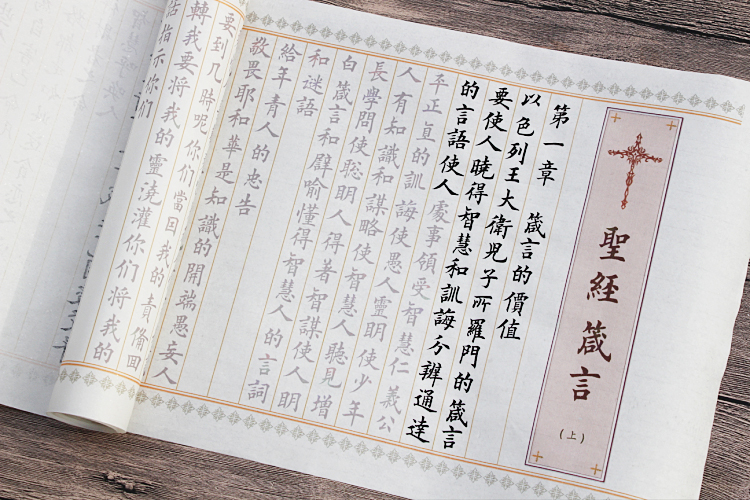 聖經箴言
（上）
第一章 箴言的價值
以色列王大衛兒子所羅門的箴言
要使人曉得智慧和訓誨分辨通達
的言語使人處事領受智慧仁義公
平正直的訓誨使愚人靈明使少年
人有知識和謀略使智慧人聽見增
長學問使聰明人得著智謀使人明
白箴言和譬喻懂得智慧人的言詞
和謎語
給年青人的忠告
敬畏耶和華是知識的開端愚妄人
要到几時呢你们當因我的責備回
轉我要將我的靈澆灌你们將我的
話指示你们